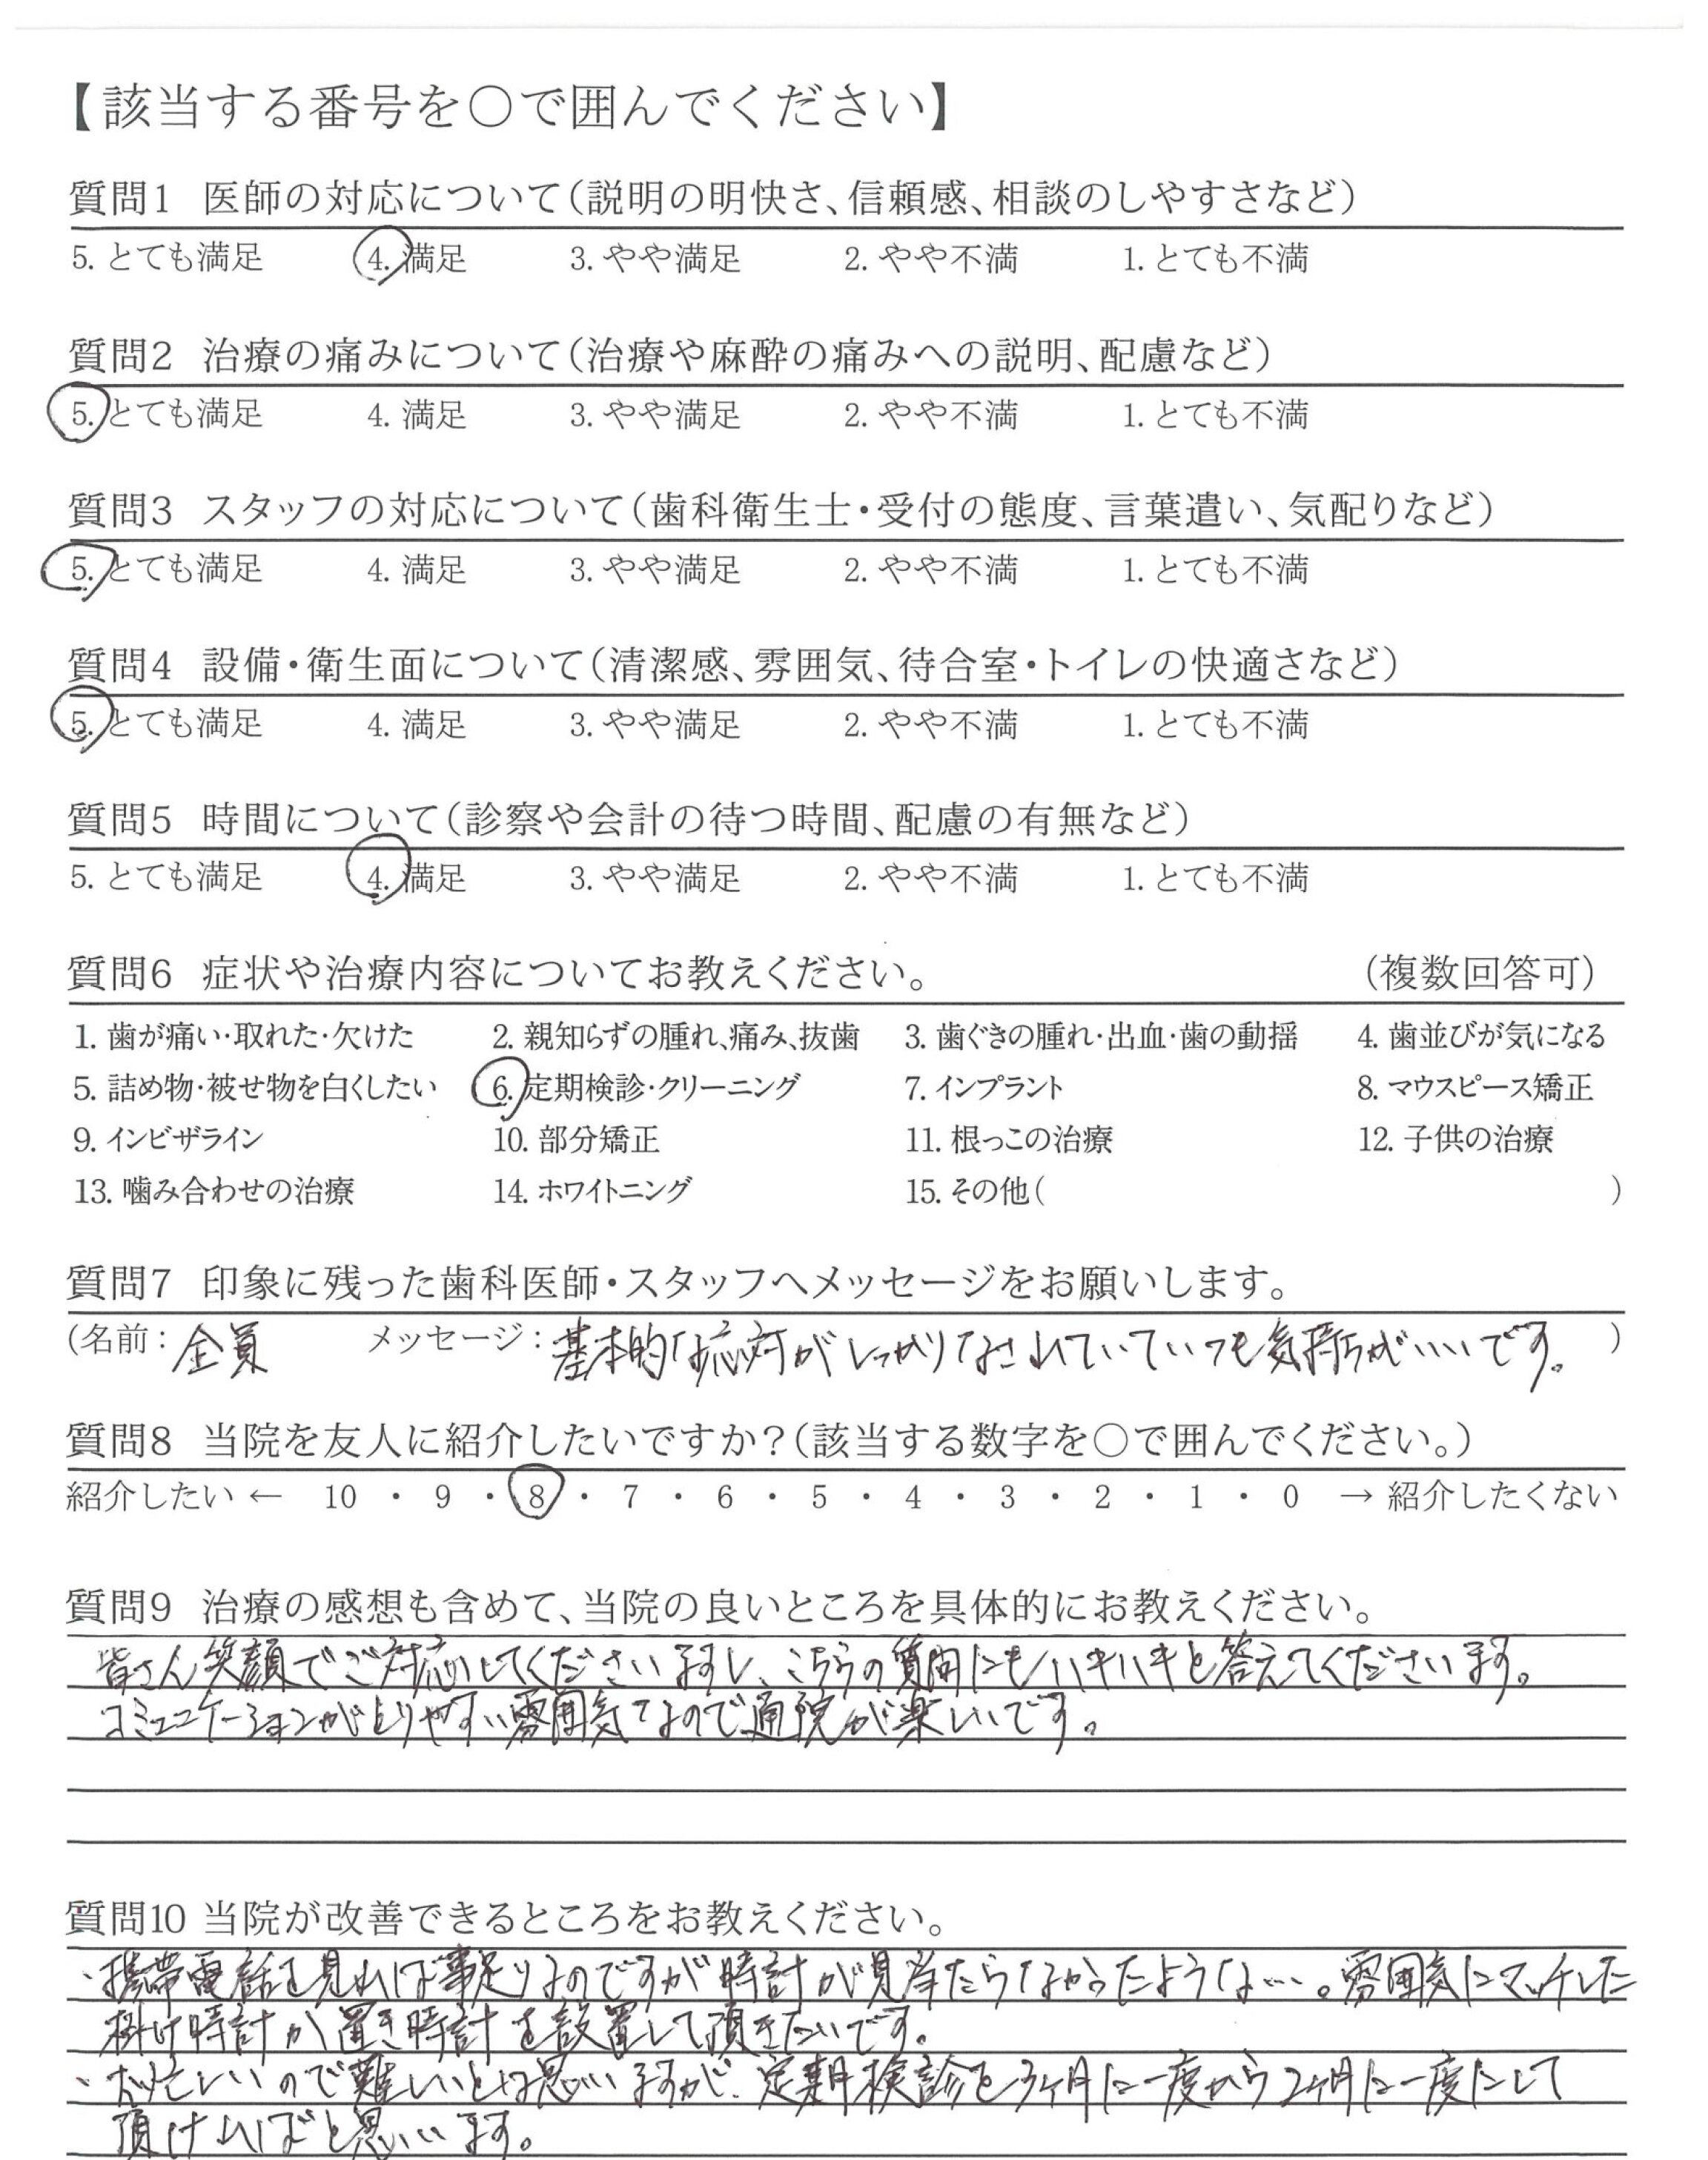 【該当する番号を○で囲んでください】
質問1 医師の対応について(説明の明快さ、信頼感、相談のしやすさなど)
5. とても満足 4. 満足 3. やや満足 2. やや不満 1. とても不満
質問2 治療の痛みについて(治療や麻酔の痛みへの説明、配慮など)
5. とても満足 4. 満足 3. やや満足 2. やや不満 1. とても不満
質問3 スタッフの対応について(歯科衛生士・受付の態度、言葉遣い、気配りなど)
5. とても満足 4. 満足 3. やや満足 2. やや不満 1. とても不満
質問4 設備・衛生面について(清潔感、雰囲気、待合室・トイレの快適さなど)
5. とても満足 4. 満足 3. やや満足 2. やや不満 1. とても不満
質問5 時間について(診察や会計の待つ時間、配慮の有無など)
5. とても満足 4. 満足 3. やや満足 2. やや不満 1. とても不満
質問6 症状や治療内容についてお教えください。 (複数回答可)
1. 歯が痛い・取れた・欠けた 2. 親知らずの腫れ、痛み、抜歯 3. 歯ぐきの腫れ・出血・歯の動揺 4. 歯並びが気になる
5. 詰め物・被せ物を白くしたい 6. 定期検診・クリーニング 7. インプラント 8. マウスピース矯正
9. インビザライン 10. 部分矯正 11. 根っこの治療 12. 子供の治療
13. 噛み合わせの治療 14. ホワイトニング 15. その他( )
質問7 印象に残った歯科医師・スタッフへメッセージをお願いします。
(名前: 全員 メッセージ: 基本的な応対がしっかりなされていていつも気持ちがいいです。 )
質問8 当院を友人に紹介したいですか?(該当する数字を○で囲んでください。)
紹介したい ← 10 ・ 9 ・ 8 ・ 7 ・ 6 ・ 5 ・ 4 ・ 3 ・ 2 ・ 1 ・ 0 → 紹介したくない
質問9 治療の感想も含めて、当院の良いところを具体的にお教えください。
皆さん笑顔でご対応してくださいますし、こちらの質問にもハキハキと答えてくださいます。
コミュニケーションがとりやすい雰囲気なので通院が楽しいです。
質問10 当院が改善できるところをお教えください。
・携帯電話を見れば事足りるのですが時計が見当たらなかったような…。雰囲気にマッチした
掛け時計か置き時計を設置して頂きたいです。
・お忙しいので難しいとは思いますが、定期検診を3ヶ月に一度から2ヶ月に一度にして
頂ければと思います。